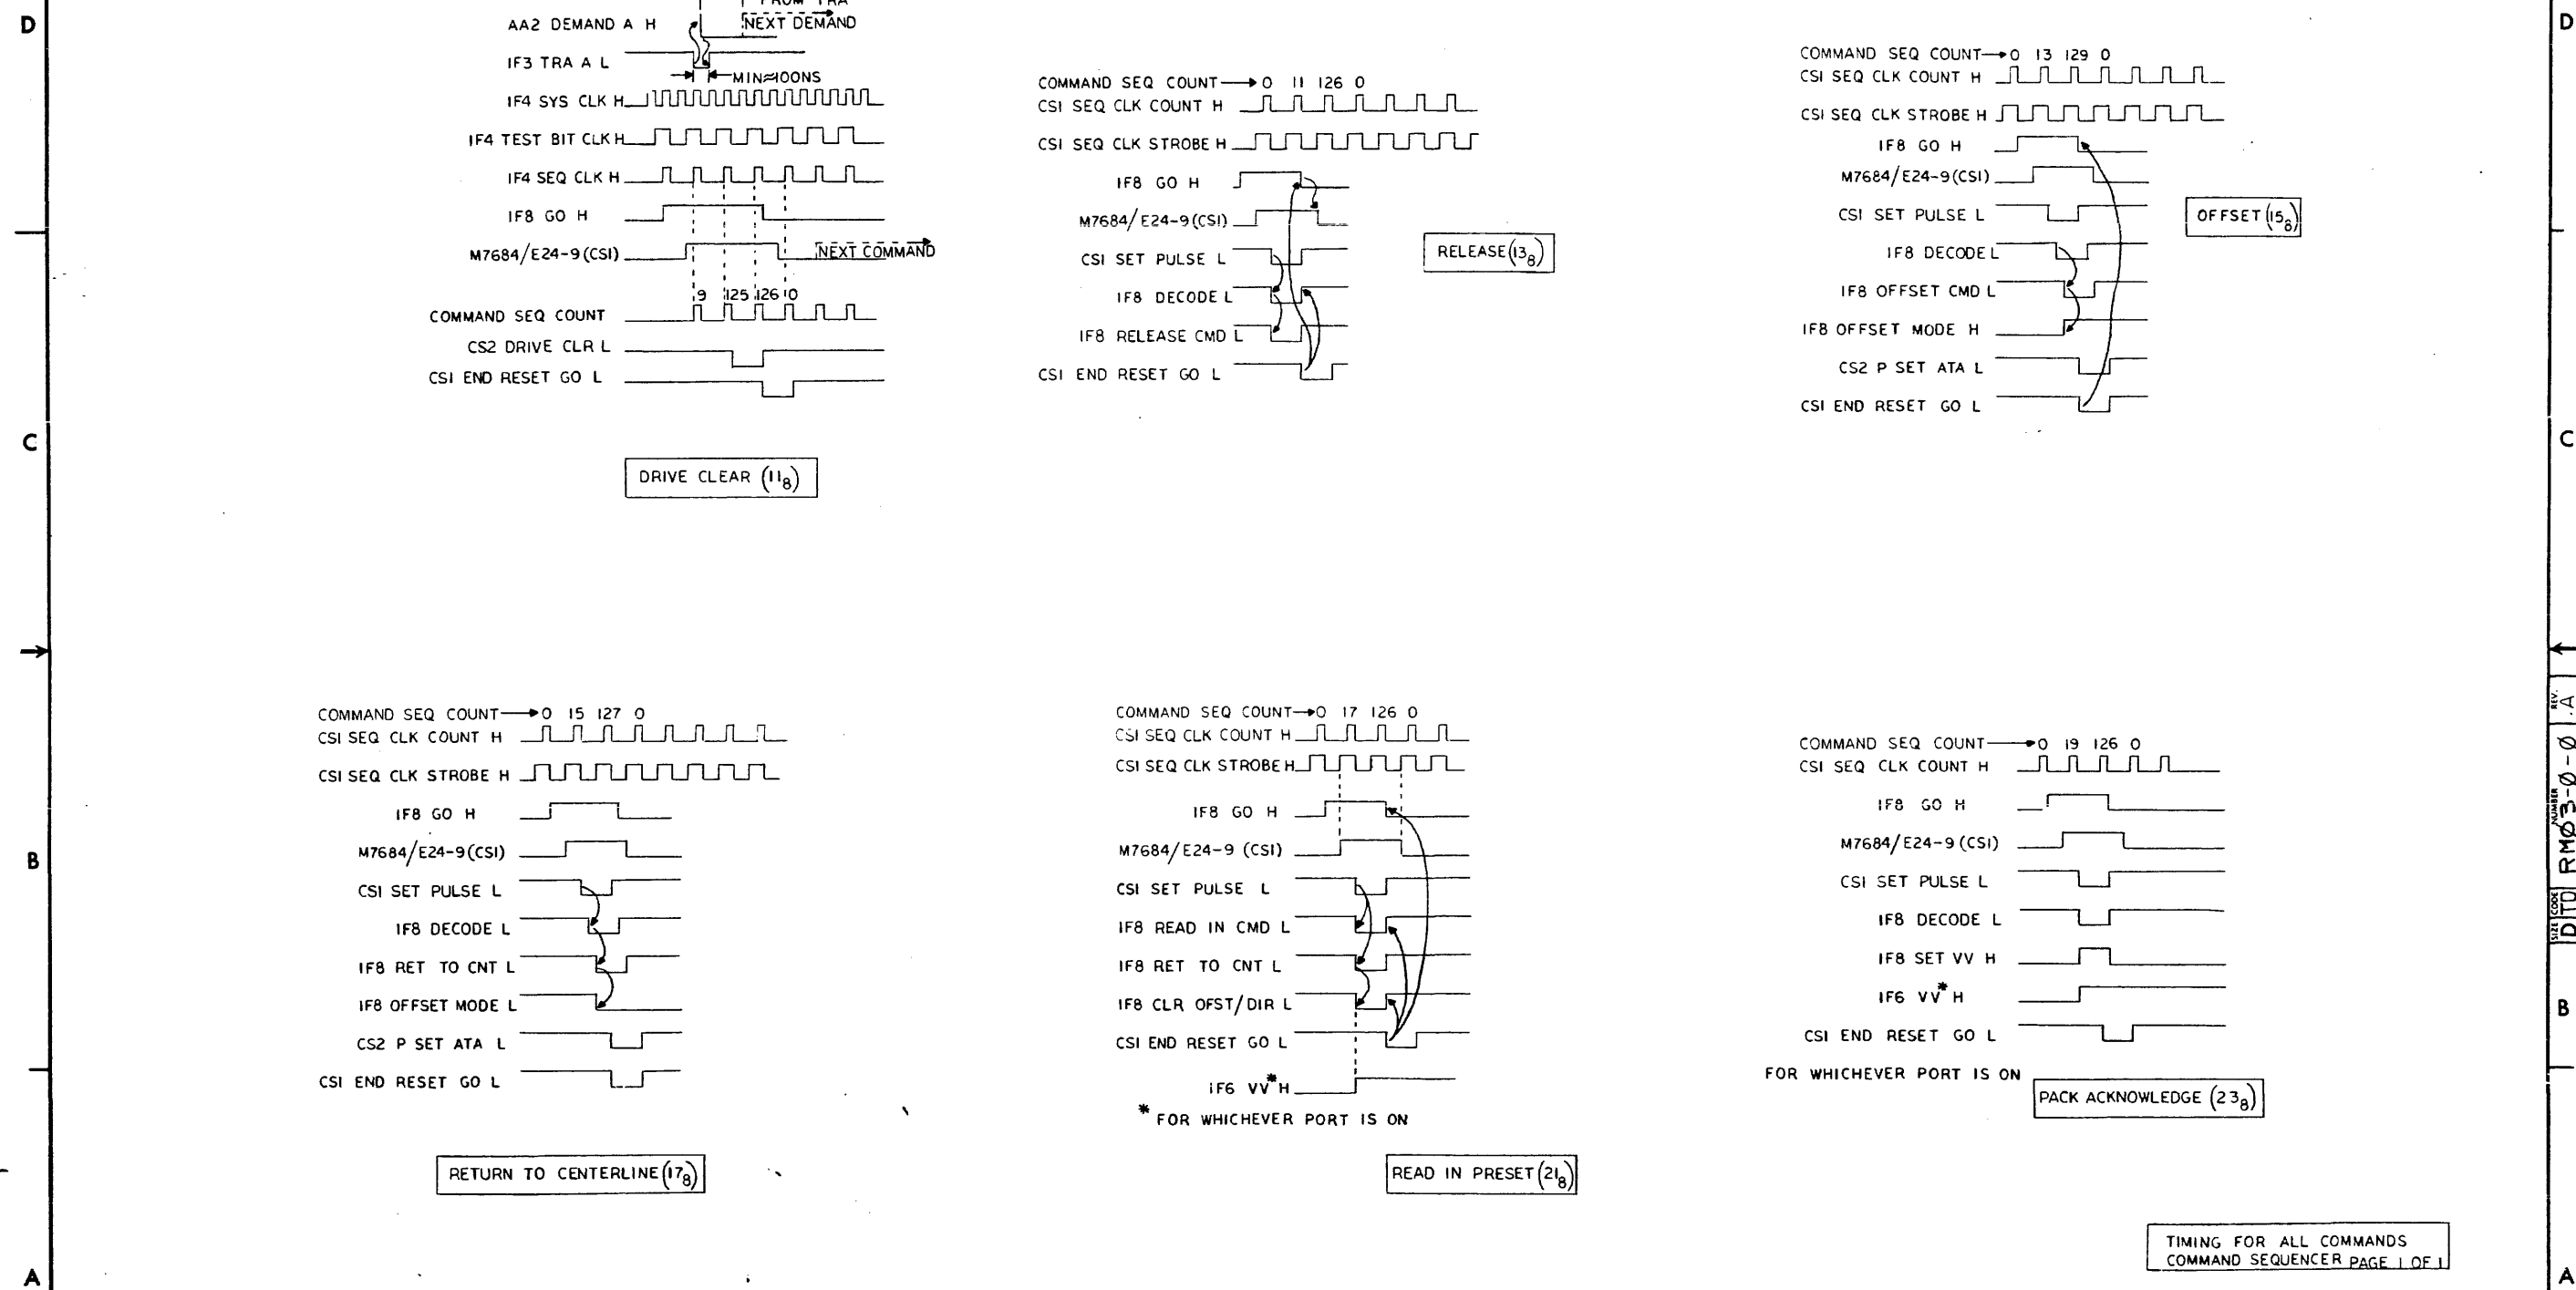 D
FROM TRA
AA2 DEMAND A H
NEXT DEMAND
IF3 TRA A L
MIN≈100NS
IF4 SYS CLK H
IF4 TEST BIT CLK H
IF4 SEQ CLK H
IF8 GO H
M7684/E24-9(CSI)
NEXT COMMAND
9 125 126 0
COMMAND SEQ COUNT
CS2 DRIVE CLR L
CSI END RESET GO L
DRIVE CLEAR (11₈)
COMMAND SEQ COUNT→0 11 126 0
CSI SEQ CLK COUNT H
CSI SEQ CLK STROBE H
IF8 GO H
M7684/E24-9(CSI)
CSI SET PULSE L
IF8 DECODE L
IF8 RELEASE CMD L
CSI END RESET GO L
RELEASE(13₈)
COMMAND SEQ COUNT→0 13 129 0
CSI SEQ CLK COUNT H
CSI SEQ CLK STROBE H
IF8 GO H
M7684/E24-9(CSI)
CSI SET PULSE L
IF8 DECODE L
IF8 OFFSET CMD L
IF8 OFFSET MODE H
CS2 P SET ATA L
CSI END RESET GO L
OFFSET(15₈)
D
C
C
COMMAND SEQ COUNT→0 15 127 0
CSI SEQ CLK COUNT H
CSI SEQ CLK STROBE H
IF8 GO H
M7684/E24-9(CSI)
CSI SET PULSE L
IF8 DECODE L
IF8 RET TO CNT L
IF8 OFFSET MODE L
CS2 P SET ATA L
CSI END RESET GO L
RETURN TO CENTERLINE(17₈)
COMMAND SEQ COUNT→0 17 126 0
CSI SEQ CLK COUNT H
CSI SEQ CLK STROBE H
IF8 GO H
M7684/E24-9 (CSI)
CSI SET PULSE L
IF8 READ IN CMD L
IF8 RET TO CNT L
IF8 CLR OFST/DIR L
CSI END RESET GO L
IF6 VV* H
* FOR WHICHEVER PORT IS ON
READ IN PRESET(21₈)
COMMAND SEQ COUNT→0 19 126 0
CSI SEQ CLK COUNT H
IF8 GO H
M7684/E24-9(CSI)
CSI SET PULSE L
IF8 DECODE L
IF8 SET VV H
IF6 VV* H
CSI END RESET GO L
FOR WHICHEVER PORT IS ON
PACK ACKNOWLEDGE (23₈)
B
B
REV.
A
NUMBER
RMØ3-Ø-Ø
SIZE CODE
D TD
TIMING FOR ALL COMMANDS
COMMAND SEQUENCER PAGE 1 OF 1
A
A